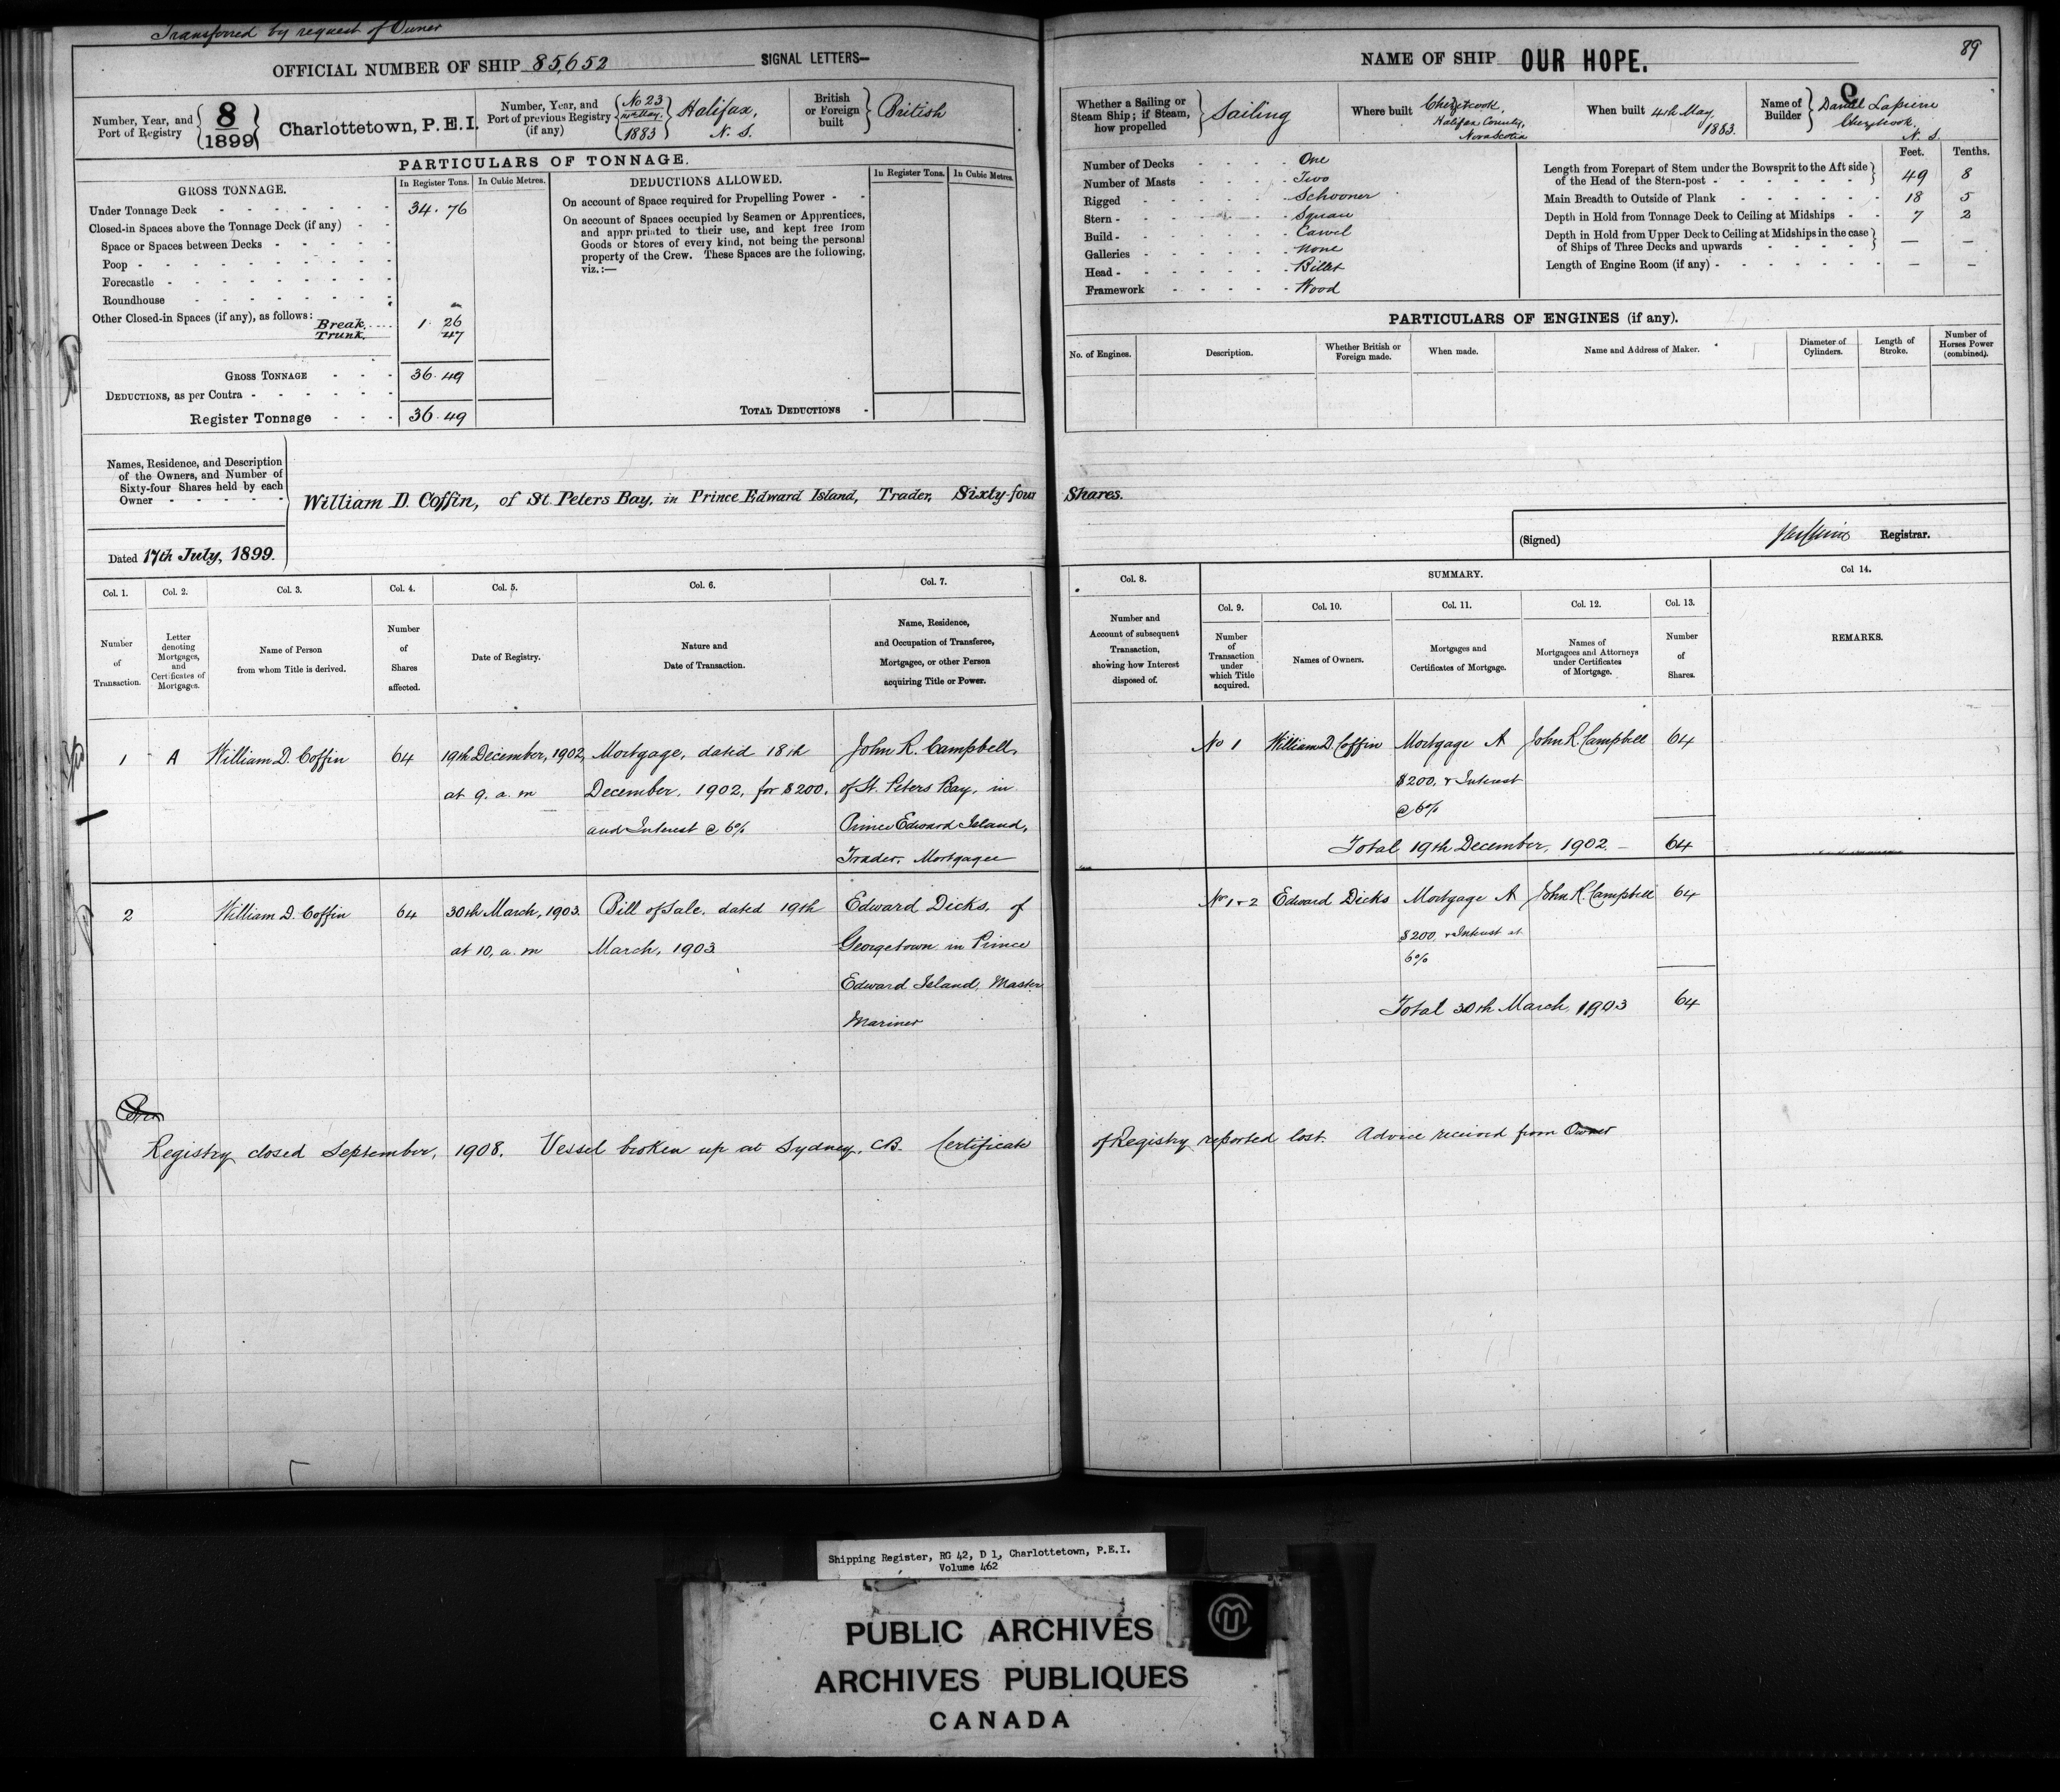 Transferred by request of Owner
OFFICIAL NUMBER OF SHIP 85,652 SIGNAL LETTERS—
Number, Year, and Port of Registry 8/1899 Charlottetown, P.E.I.
Number, Year, and Port of previous Registry (if any) No 23 1883 Halifax, N. S.
British or Foreign built British
PARTICULARS OF TONNAGE.
GROSS TONNAGE. In Register Tons. In Cubic Metres.
Under Tonnage Deck 34.76
Closed-in Spaces above the Tonnage Deck (if any)
Space or Spaces between Decks
Poop
Forecastle
Roundhouse
Other Closed-in Spaces (if any), as follows:
Break 1.26
Trunk 47
GROSS TONNAGE 36.49
DEDUCTIONS, as per Contra
Register Tonnage 36.49
DEDUCTIONS ALLOWED. In Register Tons. In Cubic Metres.
On account of Space required for Propelling Power
On account of Spaces occupied by Seamen or Apprentices,
and appropriated to their use, and kept free from
Goods or Stores of every kind, not being the personal
property of the Crew. These Spaces are the following,
viz.:—
TOTAL DEDUCTIONS
NAME OF SHIP OUR HOPE.
89
Whether a Sailing or Steam Ship; if Steam, how propelled Sailing
Where built Chezzetcook, Halifax County, Nova Scotia
When built 4th May, 1883.
Name of Builder Daniel Lapierre Chezzetcook. N. S.
Number of Decks One
Number of Masts Two
Rigged Schooner
Stern Square
Build Carvel
Galleries None
Head Billet
Framework Wood
Feet. Tenths.
Length from Forepart of Stem under the Bowsprit to the Aft side
of the Head of the Stern-post 49 8
Main Breadth to Outside of Plank 18 5
Depth in Hold from Tonnage Deck to Ceiling at Midships 7 2
Depth in Hold from Upper Deck to Ceiling at Midships in the case
of Ships of Three Decks and upwards — —
Length of Engine Room (if any) — —
PARTICULARS OF ENGINES (if any).
No. of Engines. Description. Whether British or Foreign made. When made. Name and Address of Maker. Diameter of Cylinders. Length of Stroke. Number of Horses Power (combined).
Names, Residence, and Description
of the Owners, and Number of
Sixty-four Shares held by each
Owner
William D. Coffin, of St. Peters Bay, in Prince Edward Island, Trader, Sixty-four Shares.
Dated 17th July, 1899.
(Signed) Registrar.
Col. 1. Col. 2. Col. 3. Col. 4. Col. 5. Col. 6. Col. 7. Col. 8. SUMMARY. Col 14.
Col. 9. Col. 10. Col. 11. Col. 12. Col. 13.
Number of Transaction.
Letter denoting Mortgages, and Certificates of Mortgages.
Name of Person from whom Title is derived.
Number of Shares affected.
Date of Registry.
Nature and Date of Transaction.
Name, Residence, and Occupation of Transferee, Mortgagee, or other Person acquiring Title or Power.
Number and Account of subsequent Transaction, showing how Interest disposed of.
Number of Transaction under which Title acquired.
Names of Owners.
Mortgages and Certificates of Mortgage.
Names of Mortgagees and Attorneys under Certificates of Mortgage.
Number of Shares.
REMARKS.
1 A William D. Coffin 64 19th December, 1902, Mortgage, dated 18th John R. Campbell,
at 9. a. m December, 1902, for $200, of St. Peters Bay, in
and Interest @ 6% Prince Edward Island,
Trader, Mortgagee
No 1 William D. Coffin Mortgage A John R. Campbell 64
$200, & Interest
@ 6%
Total 19th December, 1902. — 64
2 William D. Coffin 64 30th March, 1903. Bill of Sale, dated 19th Edward Dicks, of
at 10, a. m March, 1903 Georgetown in Prince
Edward Island, Master
Mariner
No 1 & 2 Edward Dicks Mortgage A John R. Campbell 64
$200, & Interest at
6%
Total 30th March, 1903 64
Registry closed September, 1908. Vessel broken up at Sydney, C.B. Certificate of Registry reported lost. Advice received from Owner
Shipping Register, RG 42, D 1, Charlottetown, P.E.I.
Volume 462
PUBLIC ARCHIVES
ARCHIVES PUBLIQUES
CANADA